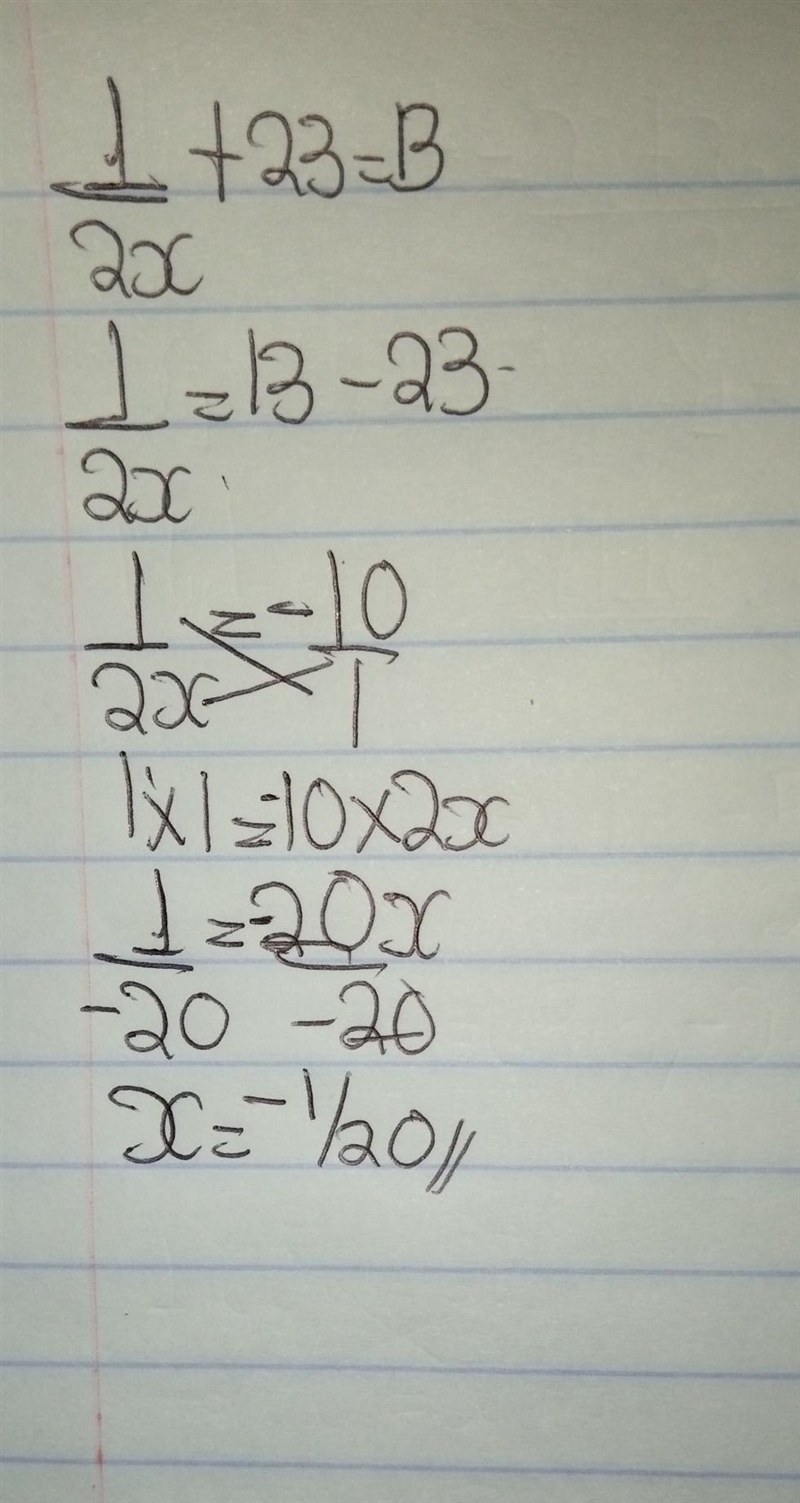 1/2x + 23 = 13
1/2x = 13 - 23
1/2x = -10/1
1 × 1 = -10 × 2x
1/-20 = -20x/-20
x = -1/20 //